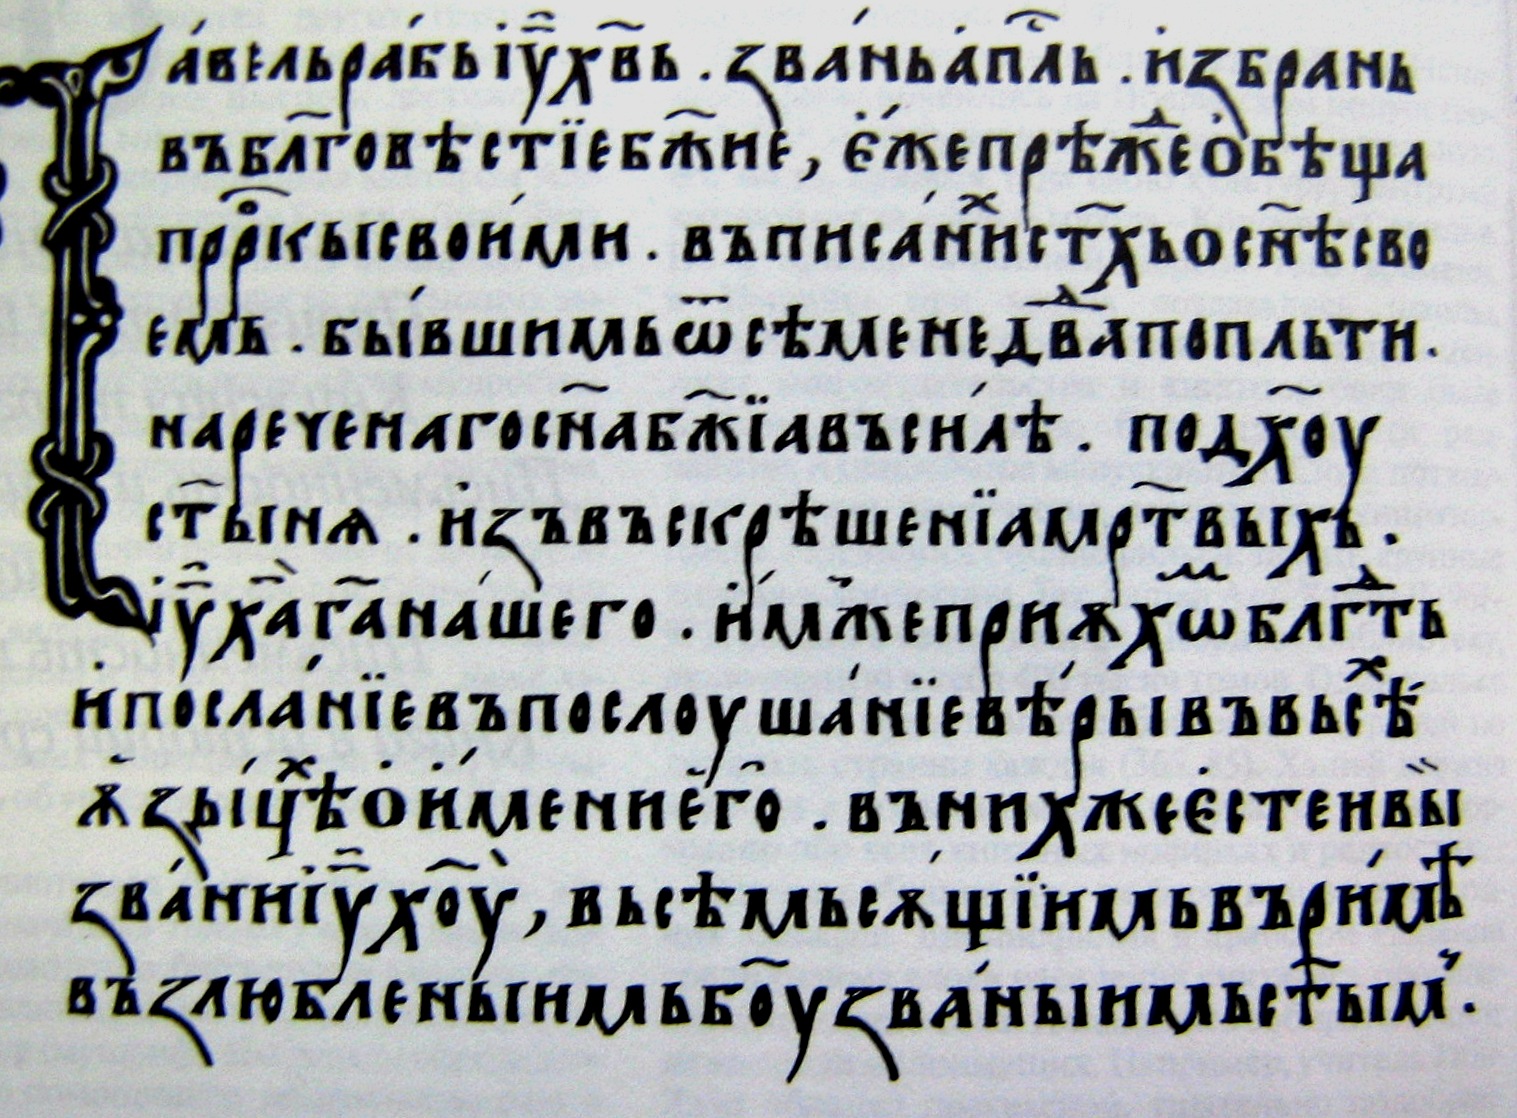 Па́вельра́бьі҆у҃хв҃ь . ꙁва́ньа́пⷭ҇ль . и҆ꙁбрань
въбл҃говѣстїебж҃ие, є҆́жепрѣжⷣео҆бѣща
прⷪ҇рѡ҃кысвои́ми . въписа́нїиⷯст҃хьосн҃ѣсво
емь . бы́вшимьѿсѣменедв҃дапопльти .
нареченагосн҃абж҃їавъси́лѣ . подх҃оу
ст҃ынѧ . и҆ꙁъвъскрѣшенїамрт҃выхь .
і҆у҃х҃а̀га҃на́шего . и҆́мⷤжеприѫхѡⷨблгⷣ҇ть
и҆посла́нїевъпослоуша́нїевѣ́рывъвьсѣⷯ
ѫ҆ꙁы́цѣⷯо҆и҆́мениег҃о . въни́хжеєстеивы̀
ꙁва́нниі҆у҃х҃оу̀, вьсѣмьсѫщїи҆мьвъри́мѣ
въꙁлюблены́имьбо҃уꙁва́ныимьст҃ым̾ .